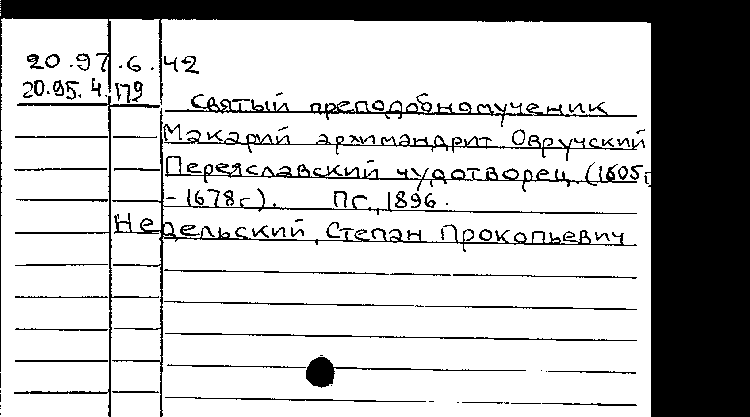 20.97.6.42
20.95.4.179
Святый преподобномученик
Макарий архимандрит Овручский
Переяславский чудотворец (1605г
- 1678г). Пг., 1896.
Недельский, Степан Прокопьевич